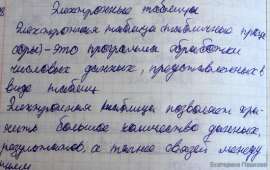 Электронные таблицы
Электронная таблица (табличные проце
соры) - это программа обработки
числовых данных, представленных в
виде таблиц
Электронная таблица позволяет хра-
нить большое количество данных,
результатов, а также связей между
ними
Екатерина Пашкова